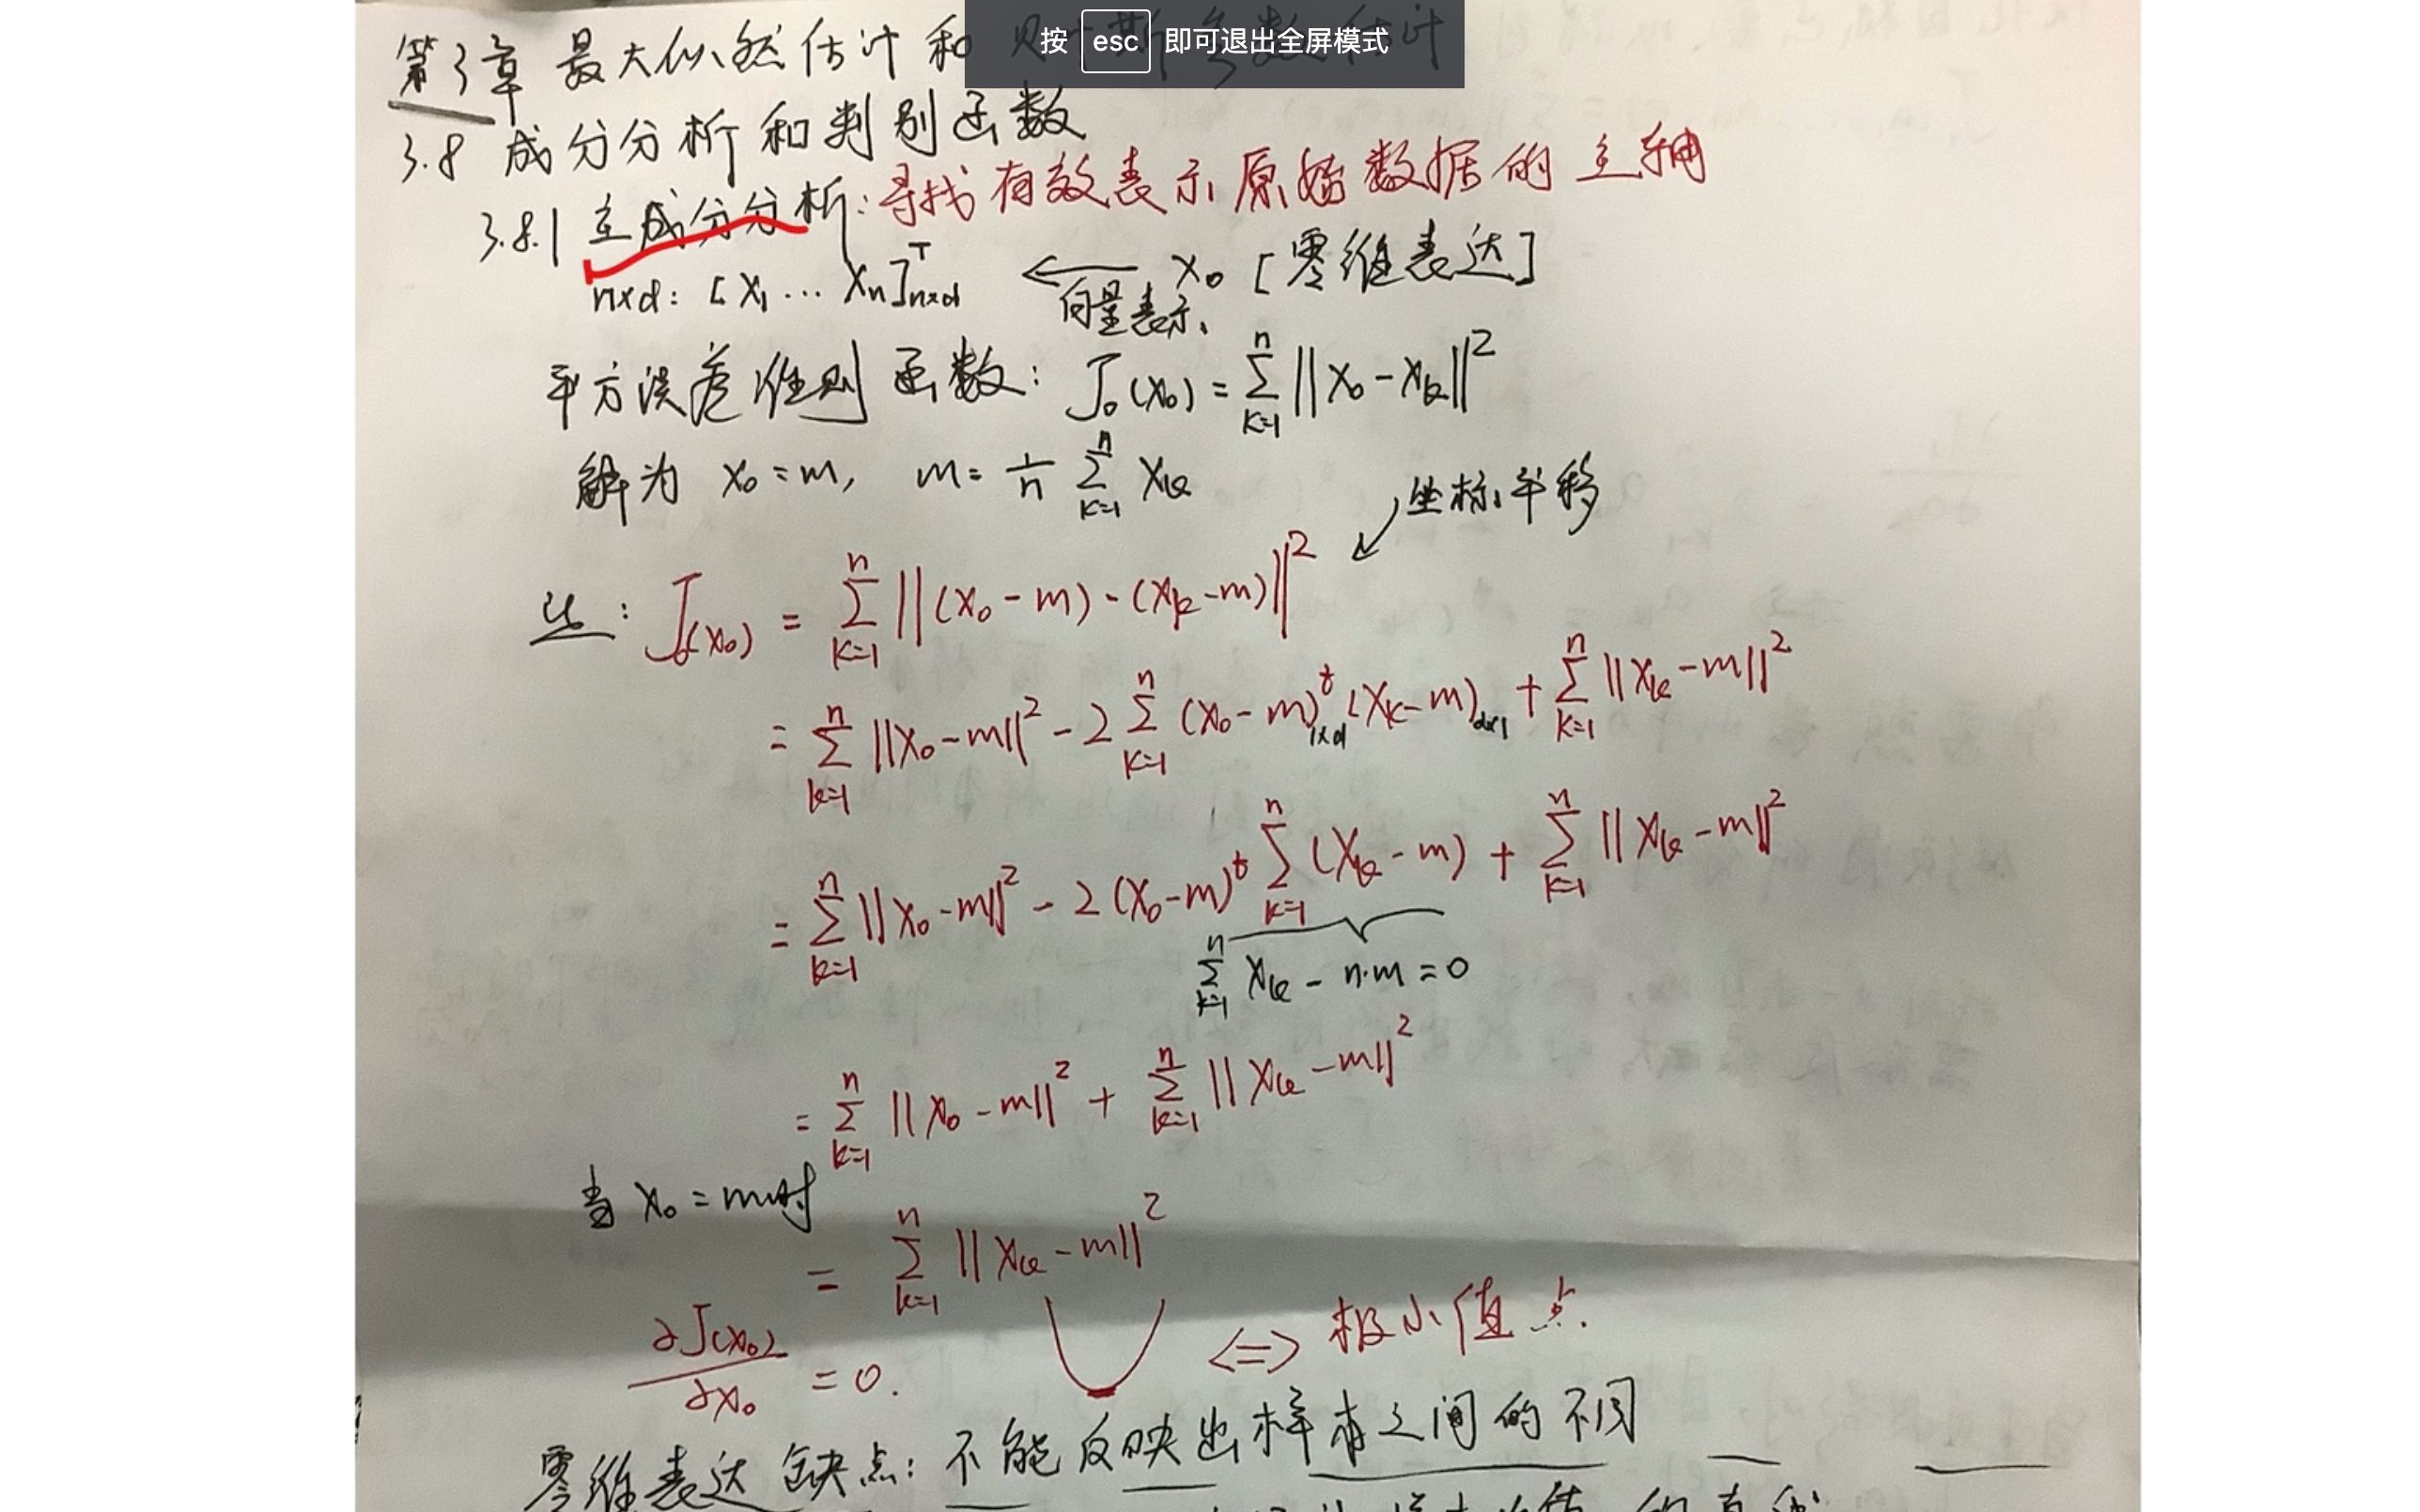 第3章 最大似然估计和 估计
按 esc 即可退出全屏模式
3.8 成分分析和判别函数
3.8.1 主成分分析: 寻找有效表示原始数据的主轴
n×d: [x₁ … xₙ]ᵀn×d ← 向量表示 x₀ [零维表达]
平方误差准则函数: J₀(x₀) = Σₖ₌₁ⁿ ||x₀ - xₖ||²
解为 x₀ = m, m = 1/n Σₖ₌₁ⁿ xₖ
坐标平移
J₀(x₀) = Σₖ₌₁ⁿ ||(x₀ - m) - (xₖ - m)||²
= Σₖ₌₁ⁿ ||x₀ - m||² - 2 Σₖ₌₁ⁿ (x₀ - m)ᵗ1×d (xₖ - m)d×1 + Σₖ₌₁ⁿ ||xₖ - m||²
= Σₖ₌₁ⁿ ||x₀ - m||² - 2 (x₀ - m)ᵗ Σₖ₌₁ⁿ (xₖ - m) + Σₖ₌₁ⁿ ||xₖ - m||²
Σₖ₌₁ⁿ xₖ - n·m = 0
= Σₖ₌₁ⁿ ||x₀ - m||² + Σₖ₌₁ⁿ ||xₖ - m||²
当 x₀ = m时
= Σₖ₌₁ⁿ ||xₖ - m||²
∂J(x₀)/∂x₀ = 0. <=> 极小值点.
零维表达缺点: 不能反映出样本之间的不同